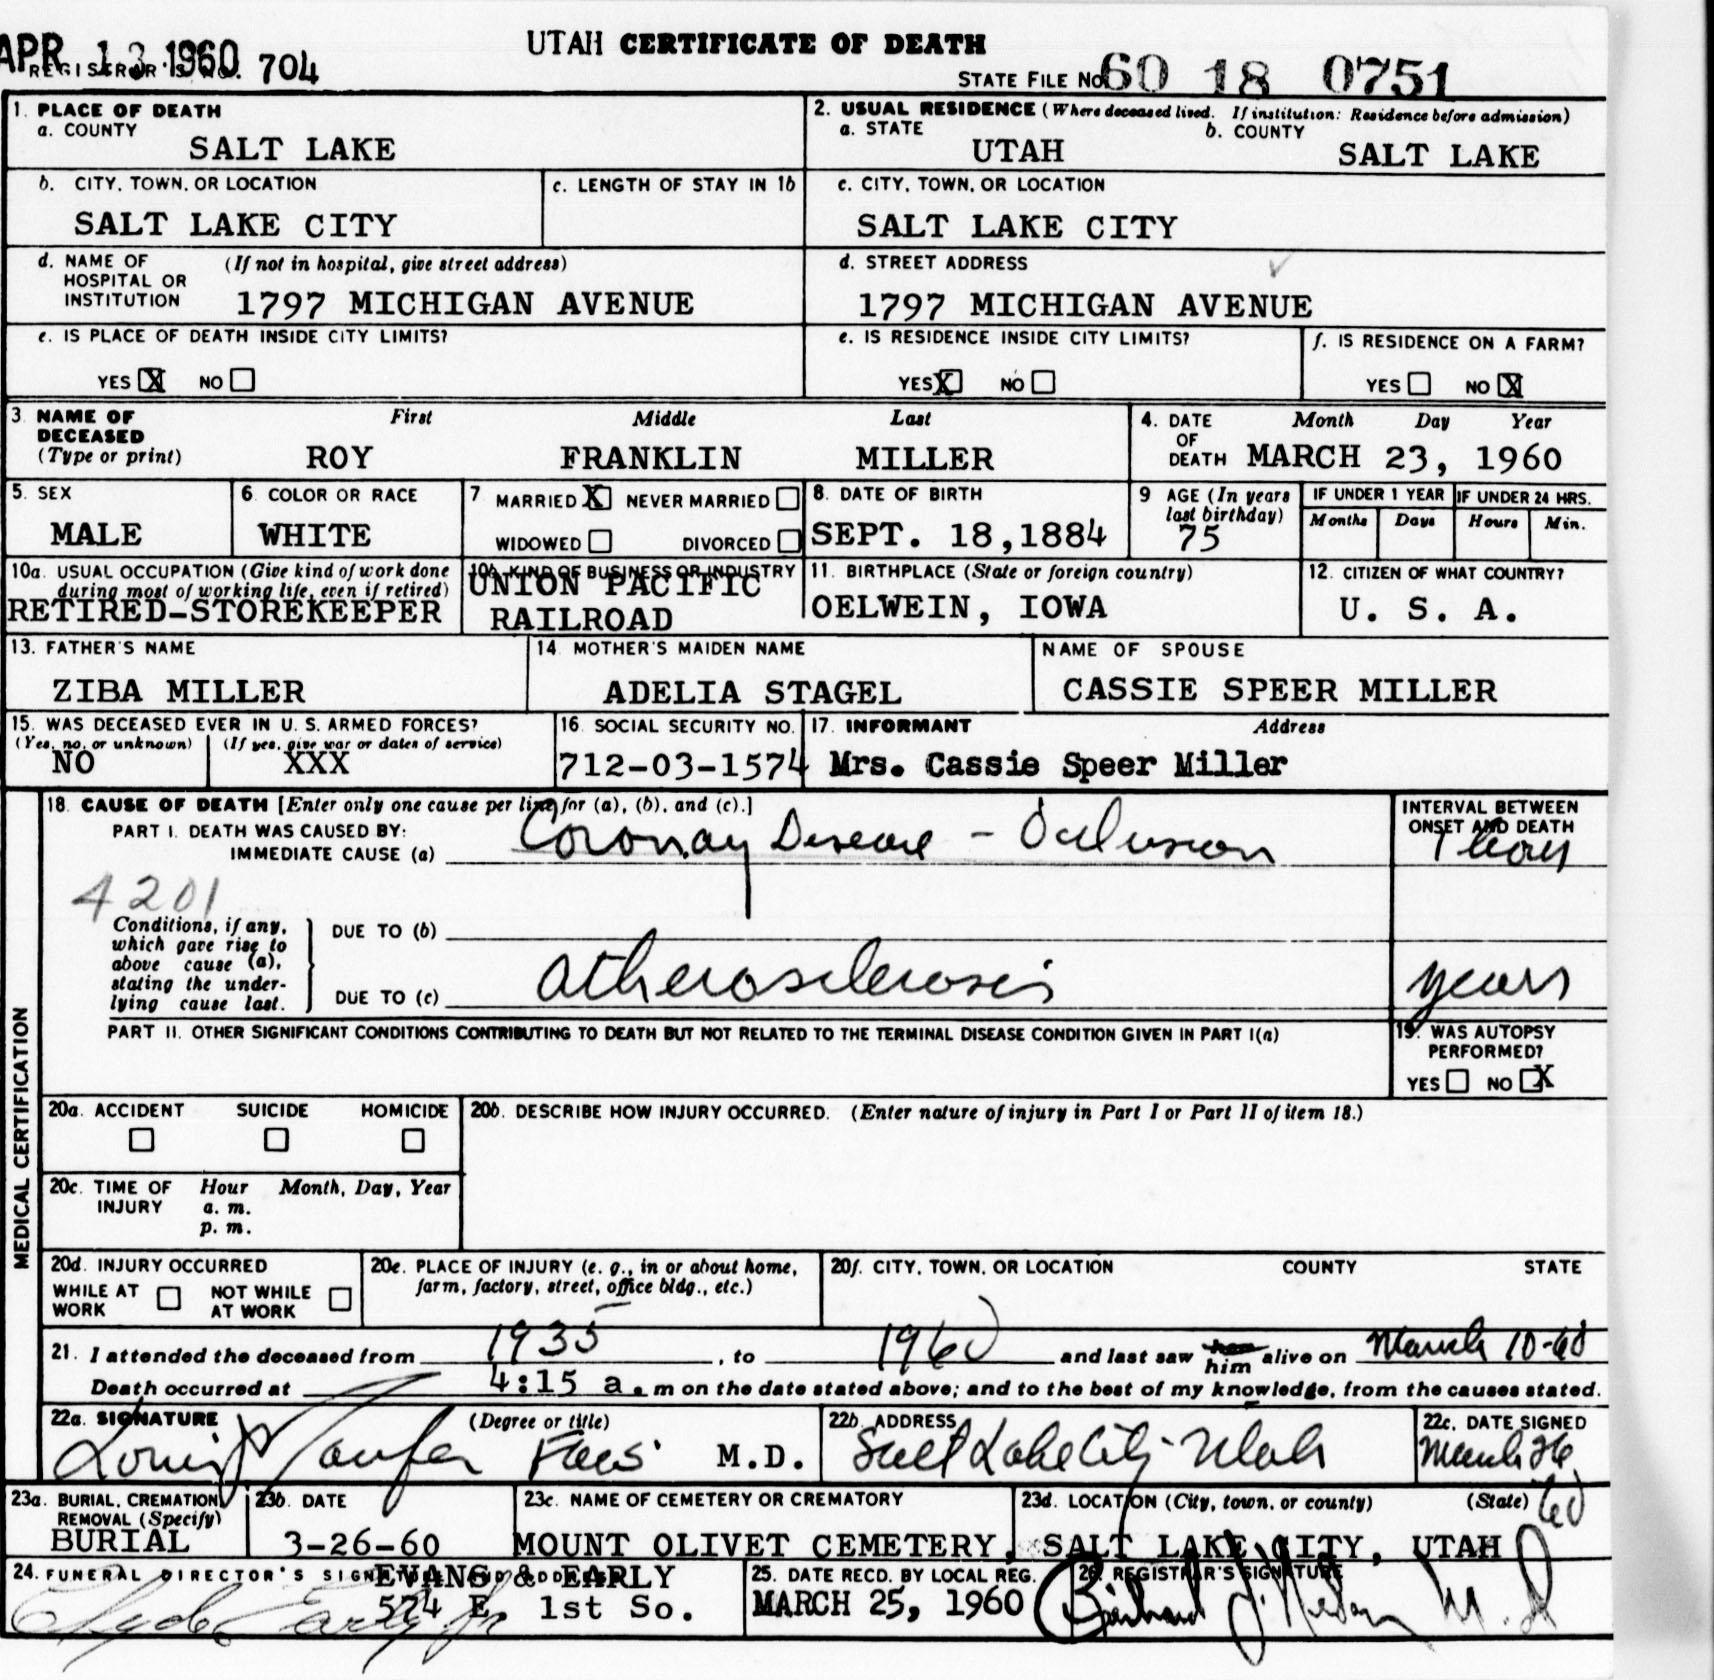 APR 13 1960
REGISTRAR'S NO. 704
UTAH CERTIFICATE OF DEATH
STATE FILE NO. 60 18 0751
1. PLACE OF DEATH
a. COUNTY
SALT LAKE
2. USUAL RESIDENCE (Where deceased lived. If institution: Residence before admission)
a. STATE
UTAH
b. COUNTY
SALT LAKE
b. CITY, TOWN, OR LOCATION
SALT LAKE CITY
c. LENGTH OF STAY IN 1b
c. CITY, TOWN, OR LOCATION
SALT LAKE CITY
d. NAME OF HOSPITAL OR INSTITUTION
(If not in hospital, give street address)
1797 MICHIGAN AVENUE
d. STREET ADDRESS
1797 MICHIGAN AVENUE
e. IS PLACE OF DEATH INSIDE CITY LIMITS?
YES X NO
e. IS RESIDENCE INSIDE CITY LIMITS?
YES X NO
f. IS RESIDENCE ON A FARM?
YES NO X
3. NAME OF DECEASED (Type or print)
First Middle Last
ROY FRANKLIN MILLER
4. DATE OF DEATH
Month Day Year
MARCH 23, 1960
5. SEX
MALE
6. COLOR OR RACE
WHITE
7. MARRIED X NEVER MARRIED
WIDOWED DIVORCED
8. DATE OF BIRTH
SEPT. 18,1884
9 AGE (In years last birthday)
75
IF UNDER 1 YEAR
Months Days
IF UNDER 24 HRS.
Hours Min.
10a. USUAL OCCUPATION (Give kind of work done
during most of working life, even if retired)
RETIRED-STOREKEEPER
10b. KIND OF BUSINESS OR INDUSTRY
UNION PACIFIC
RAILROAD
11. BIRTHPLACE (State or foreign country)
OELWEIN, IOWA
12. CITIZEN OF WHAT COUNTRY?
U. S. A.
13. FATHER'S NAME
ZIBA MILLER
14. MOTHER'S MAIDEN NAME
ADELIA STAGEL
NAME OF SPOUSE
CASSIE SPEER MILLER
15. WAS DECEASED EVER IN U. S. ARMED FORCES?
(Yes, no, or unknown) (If yes, give war or dates of service)
NO XXX
16. SOCIAL SECURITY NO.
712-03-1574
17. INFORMANT Address
Mrs. Cassie Speer Miller
MEDICAL CERTIFICATION
18. CAUSE OF DEATH [Enter only one cause per line for (a), (b), and (c).]
PART I. DEATH WAS CAUSED BY:
IMMEDIATE CAUSE (a) Coronary Disease - Occlusion
INTERVAL BETWEEN ONSET AND DEATH
1 hour
4201
Conditions, if any,
which gave rise to
above cause (a),
stating the under-
lying cause last.
DUE TO (b)
DUE TO (c) atherosclerosis
years
PART II. OTHER SIGNIFICANT CONDITIONS CONTRIBUTING TO DEATH BUT NOT RELATED TO THE TERMINAL DISEASE CONDITION GIVEN IN PART I(a)
19. WAS AUTOPSY PERFORMED?
YES NO X
20a. ACCIDENT SUICIDE HOMICIDE
20b. DESCRIBE HOW INJURY OCCURRED. (Enter nature of injury in Part I or Part II of item 18.)
20c. TIME OF INJURY
Hour Month, Day, Year
a. m.
p. m.
20d. INJURY OCCURRED
WHILE AT WORK NOT WHILE AT WORK
20e. PLACE OF INJURY (e. g., in or about home,
farm, factory, street, office bldg., etc.)
20f. CITY, TOWN, OR LOCATION COUNTY STATE
21. I attended the deceased from 1935, to 1960 and last saw him alive on March 10-60
Death occurred at 4:15 a. m on the date stated above; and to the best of my knowledge, from the causes stated.
22a. SIGNATURE (Degree or title)
Louis M.D.
22b. ADDRESS
Salt Lake City Utah
22c. DATE SIGNED
March 26, 60
23a. BURIAL, CREMATION, REMOVAL (Specify)
BURIAL
23b. DATE
3-26-60
23c. NAME OF CEMETERY OR CREMATORY
MOUNT OLIVET CEMETERY,
23d. LOCATION (City, town, or county) (State)
SALT LAKE CITY, UTAH
24. FUNERAL DIRECTOR'S SIGNATURE AND ADDRESS
EVANS & EARLY
574 E. 1st So.
25. DATE RECD. BY LOCAL REG.
MARCH 25, 1960
26. REGISTRAR'S SIGNATURE